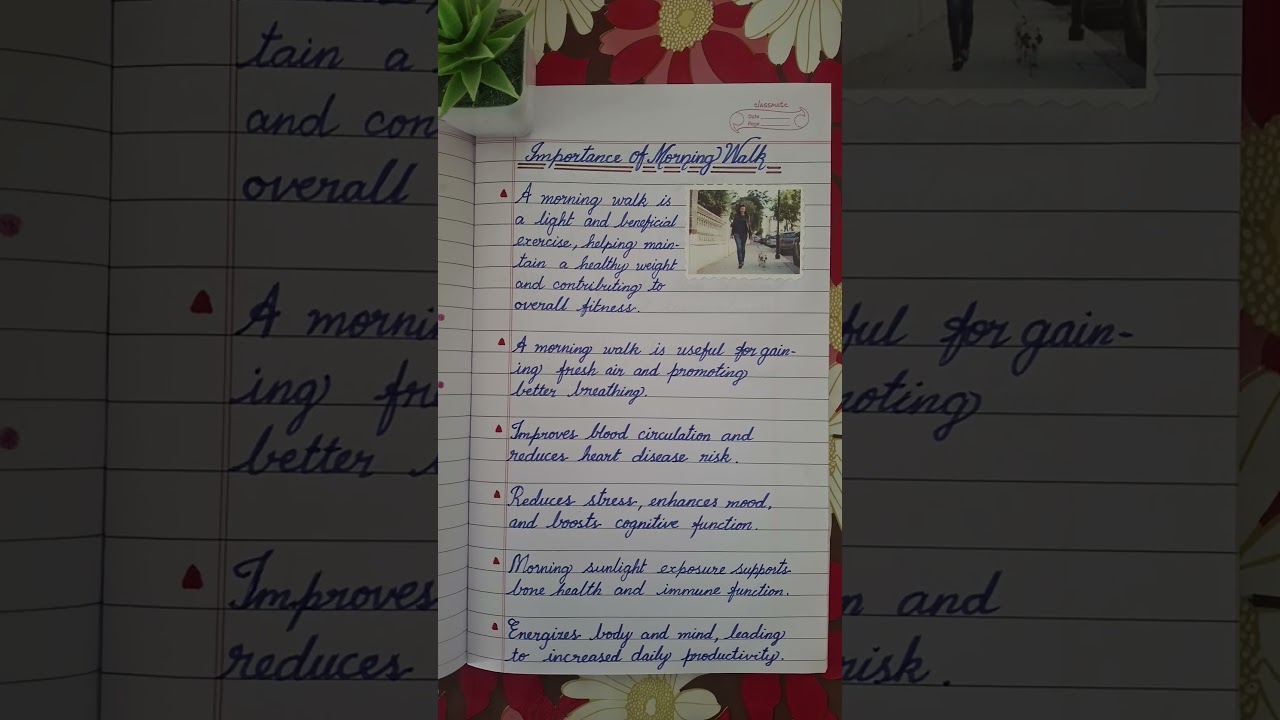 classmate
Date
Page
Importance of Morning Walk
A morning walk is
a light and beneficial
exercise, helping main-
tain a healthy weight
and contributing to
overall fitness.
A morning walk is useful for gain-
ing fresh air and promoting
better breathing.
Improves blood circulation and
reduces heart disease risk.
Reduces stress, enhances mood,
and boosts cognitive function.
Morning sunlight exposure supports
bone health and immune function.
Energizes body and mind, leading
to increased daily productivity.